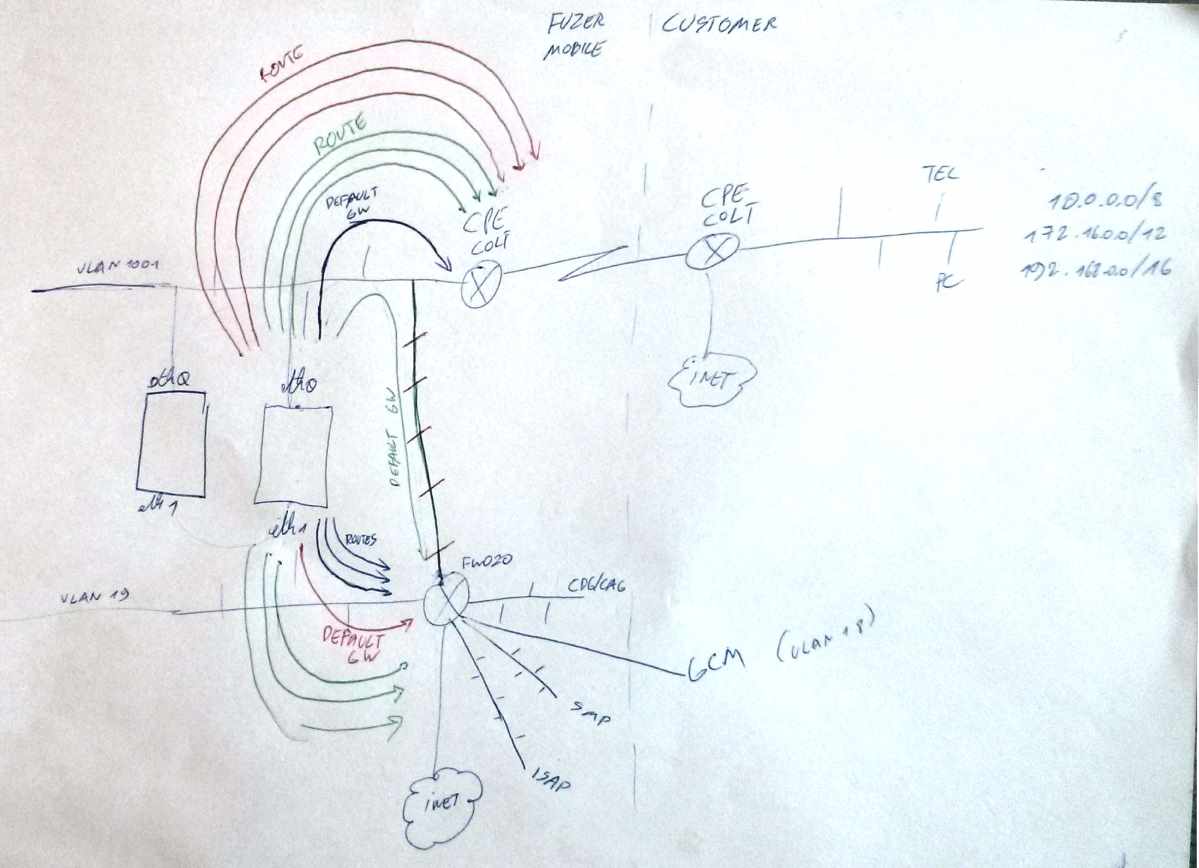 FUZER
MOBILE
CUSTOMER
ROUTE
ROUTE
DEFAULT
GW
CPE
COLT
CPE
COLT
TEL
PC
10.0.0.0/8
172.16.0.0/12
192.168.0.0/16
VLAN 1001
INET
eth0
eth0
DEFAULT GW
eth1
eth1
ROUTES
FW020
VLAN 19
DEFAULT
GW
GCM (VLAN 18)
SMP
ISAP
INET